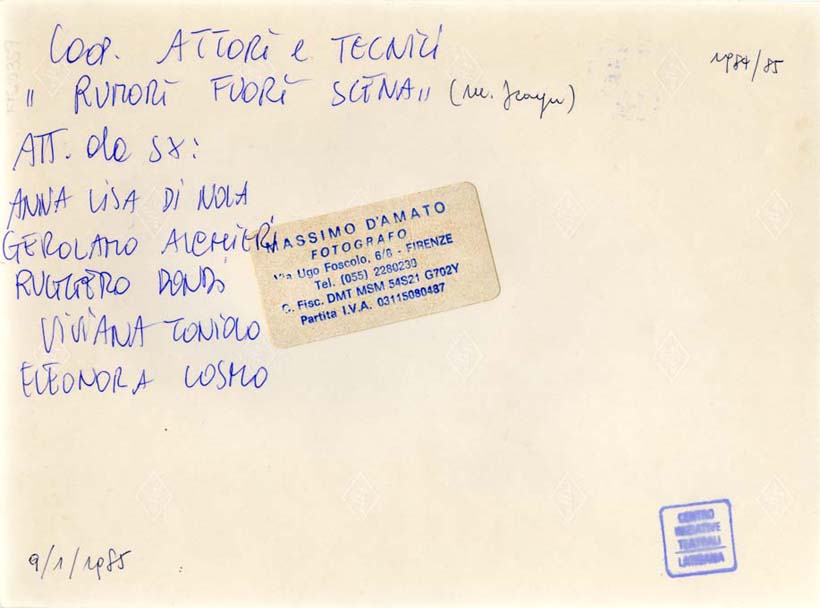 COOP. ATTORI e TECNICI
1984/85
" RUMORI FUORI SCENA " (M. Frayn)
ATT. da sx:
ANNA LISA DI NOLA
GEROLAMO ALCHIERI
RUGGERO DONDI
VIVIANA TONIOLO
ELEONORA COSMO
MASSIMO D'AMATO
FOTOGRAFO
Via Ugo Foscolo, 6/8 - FIRENZE
Tel. (055) 2280230
C. Fisc. DMT MSM 54S21 G702Y
Partita I.V.A. 03115080487
CENTRO
INIZIATIVE
TEATRALI
9/1/1985